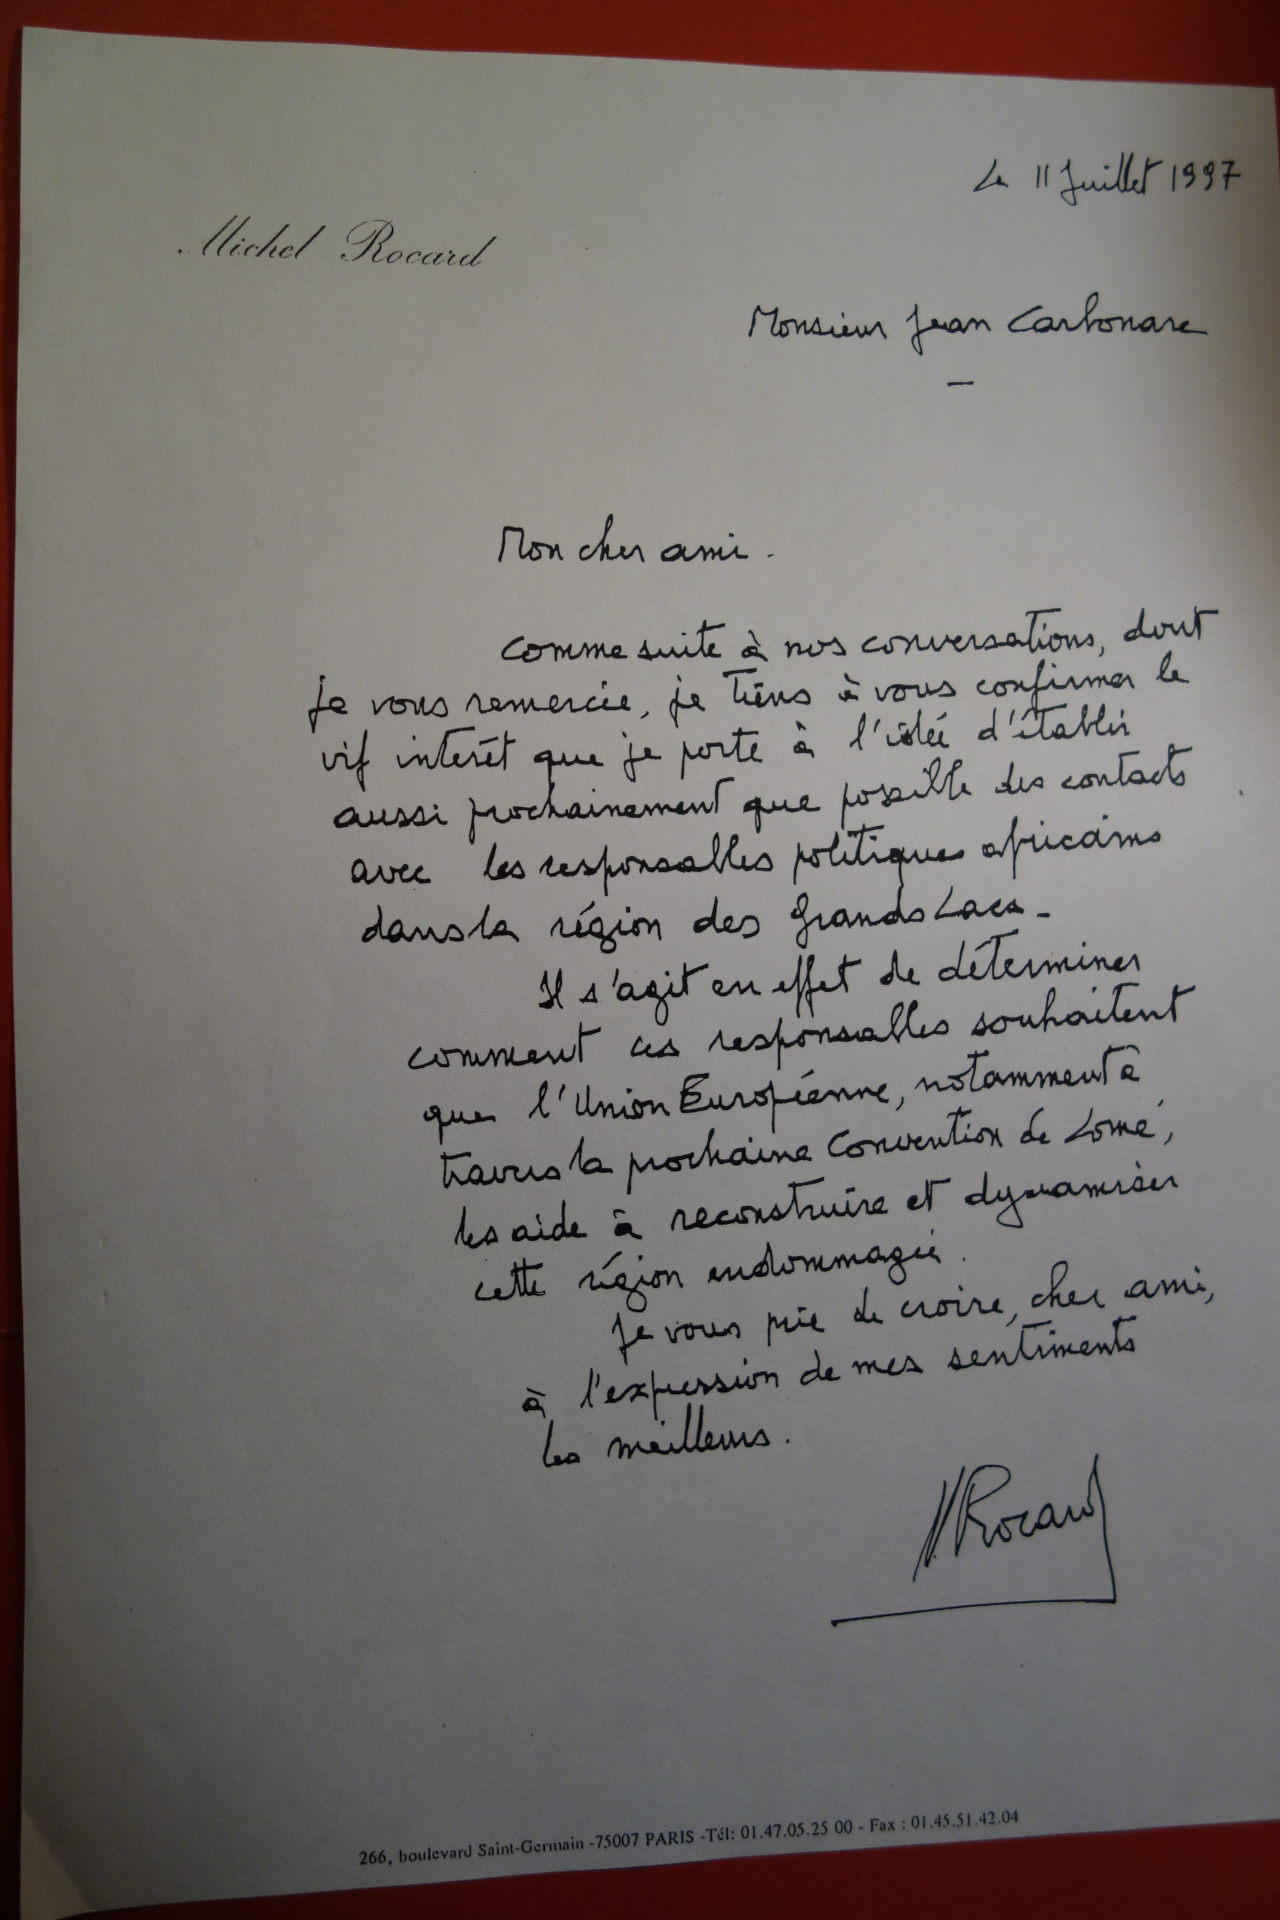 Le 11 Juillet 1997
Michel Rocard
Monsieur Jean Carbonare
—
Mon cher ami.
Comme suite à nos conversations, dont
je vous remercie, je tiens à vous confirmer le
vif intérêt que je porte à l'idée d'établir
aussi prochainement que possible des contacts
avec les responsables politiques africains
dans la région des Grands Lacs -
Il s'agit en effet de déterminer
comment ces responsables souhaitent
que l'Union Européenne, notamment à
travers la prochaine Convention de Lomé,
les aide à reconstruire et dynamiser
cette région endommagée.
Je vous prie de croire, cher ami,
à l'expression de mes sentiments
les meilleurs.
MRocard
266, boulevard Saint-Germain -75007 PARIS -Tél: 01.47.05.25 00 - Fax : 01.45.51.42.04